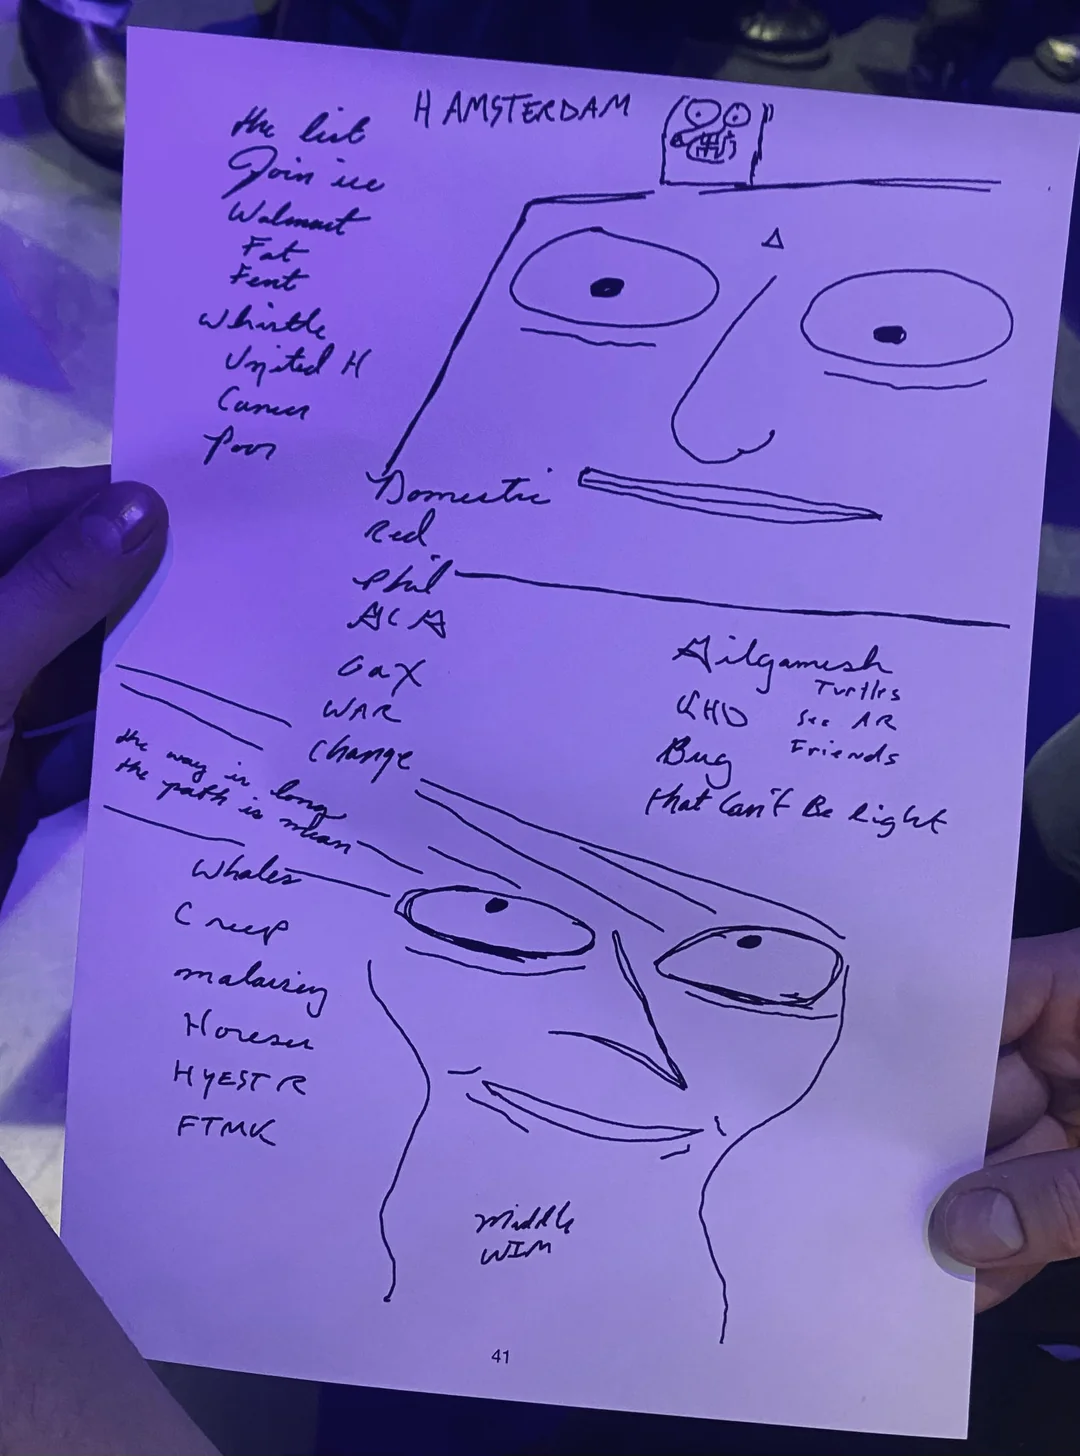 HAMSTERDAM
the list
Join ice
Walmart
Fat
Fent
Whistle
United H
Cancer
Poor
Domestic
Red
Phil
ACA
Gax
WAR
Change
the way is long
the path is mean
Whales
Creep
Horeser
HYESTR
FTMK
Gilgamesh
Turtles
See AR
Bug
Friends
that Can't Be Right
Middle
WIM
41